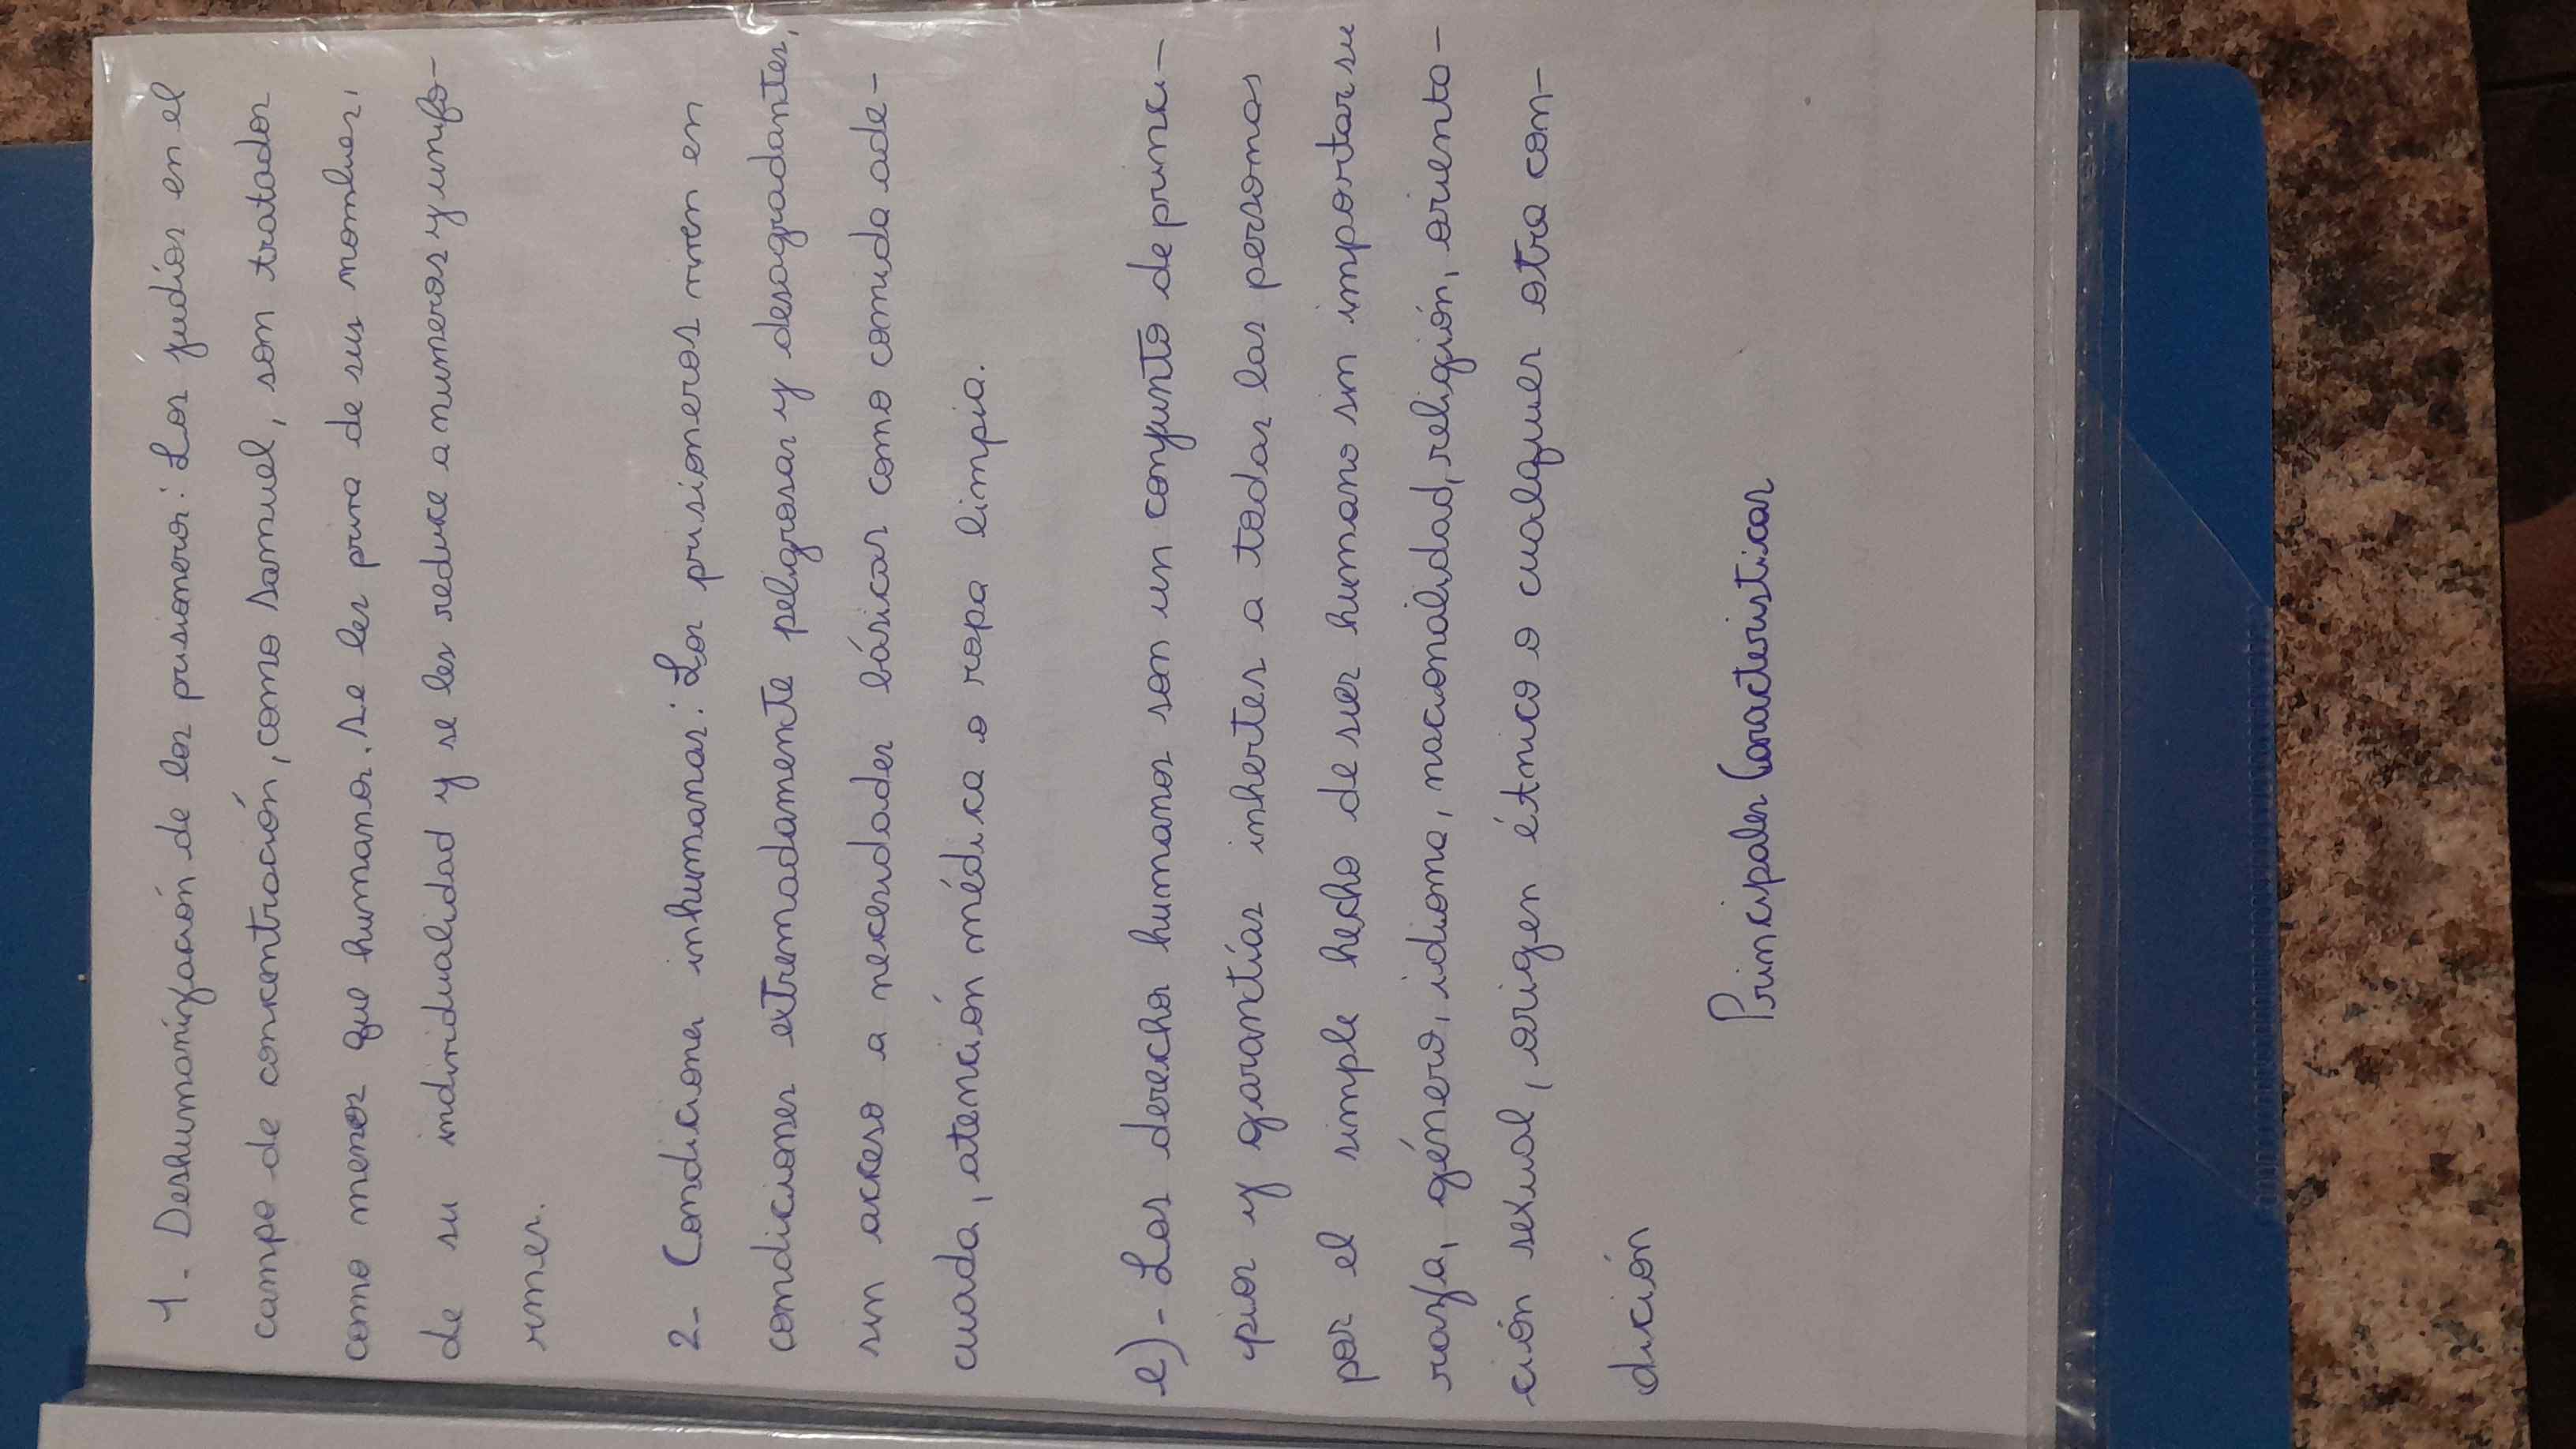 1. Deshumanización de los prisioneros: Los judíos en el
campo de concentración, como Samuel, son tratados
como menos que humanos. Se les priva de sus nombres,
de su individualidad y se les reduce a numeros y unifo-
rmes.
2- Condiciones inhumanas: Los prisioneros viven en
condiciones extremadamente peligrosas y desagradantes,
sin acceso a necesidades básicas como comida ade-
cuada, atención médica o ropa limpia.
e)- Los derechos humanos son un conjunto de princi-
pios y garantías inhertes a todas las personas
por el simple hecho de ser humano sin importar su
raza, género, idioma, nacionalidad, religión, orienta-
ción sexual, origen étnico o cualquer otra con-
dición
Principales Caracteristicas